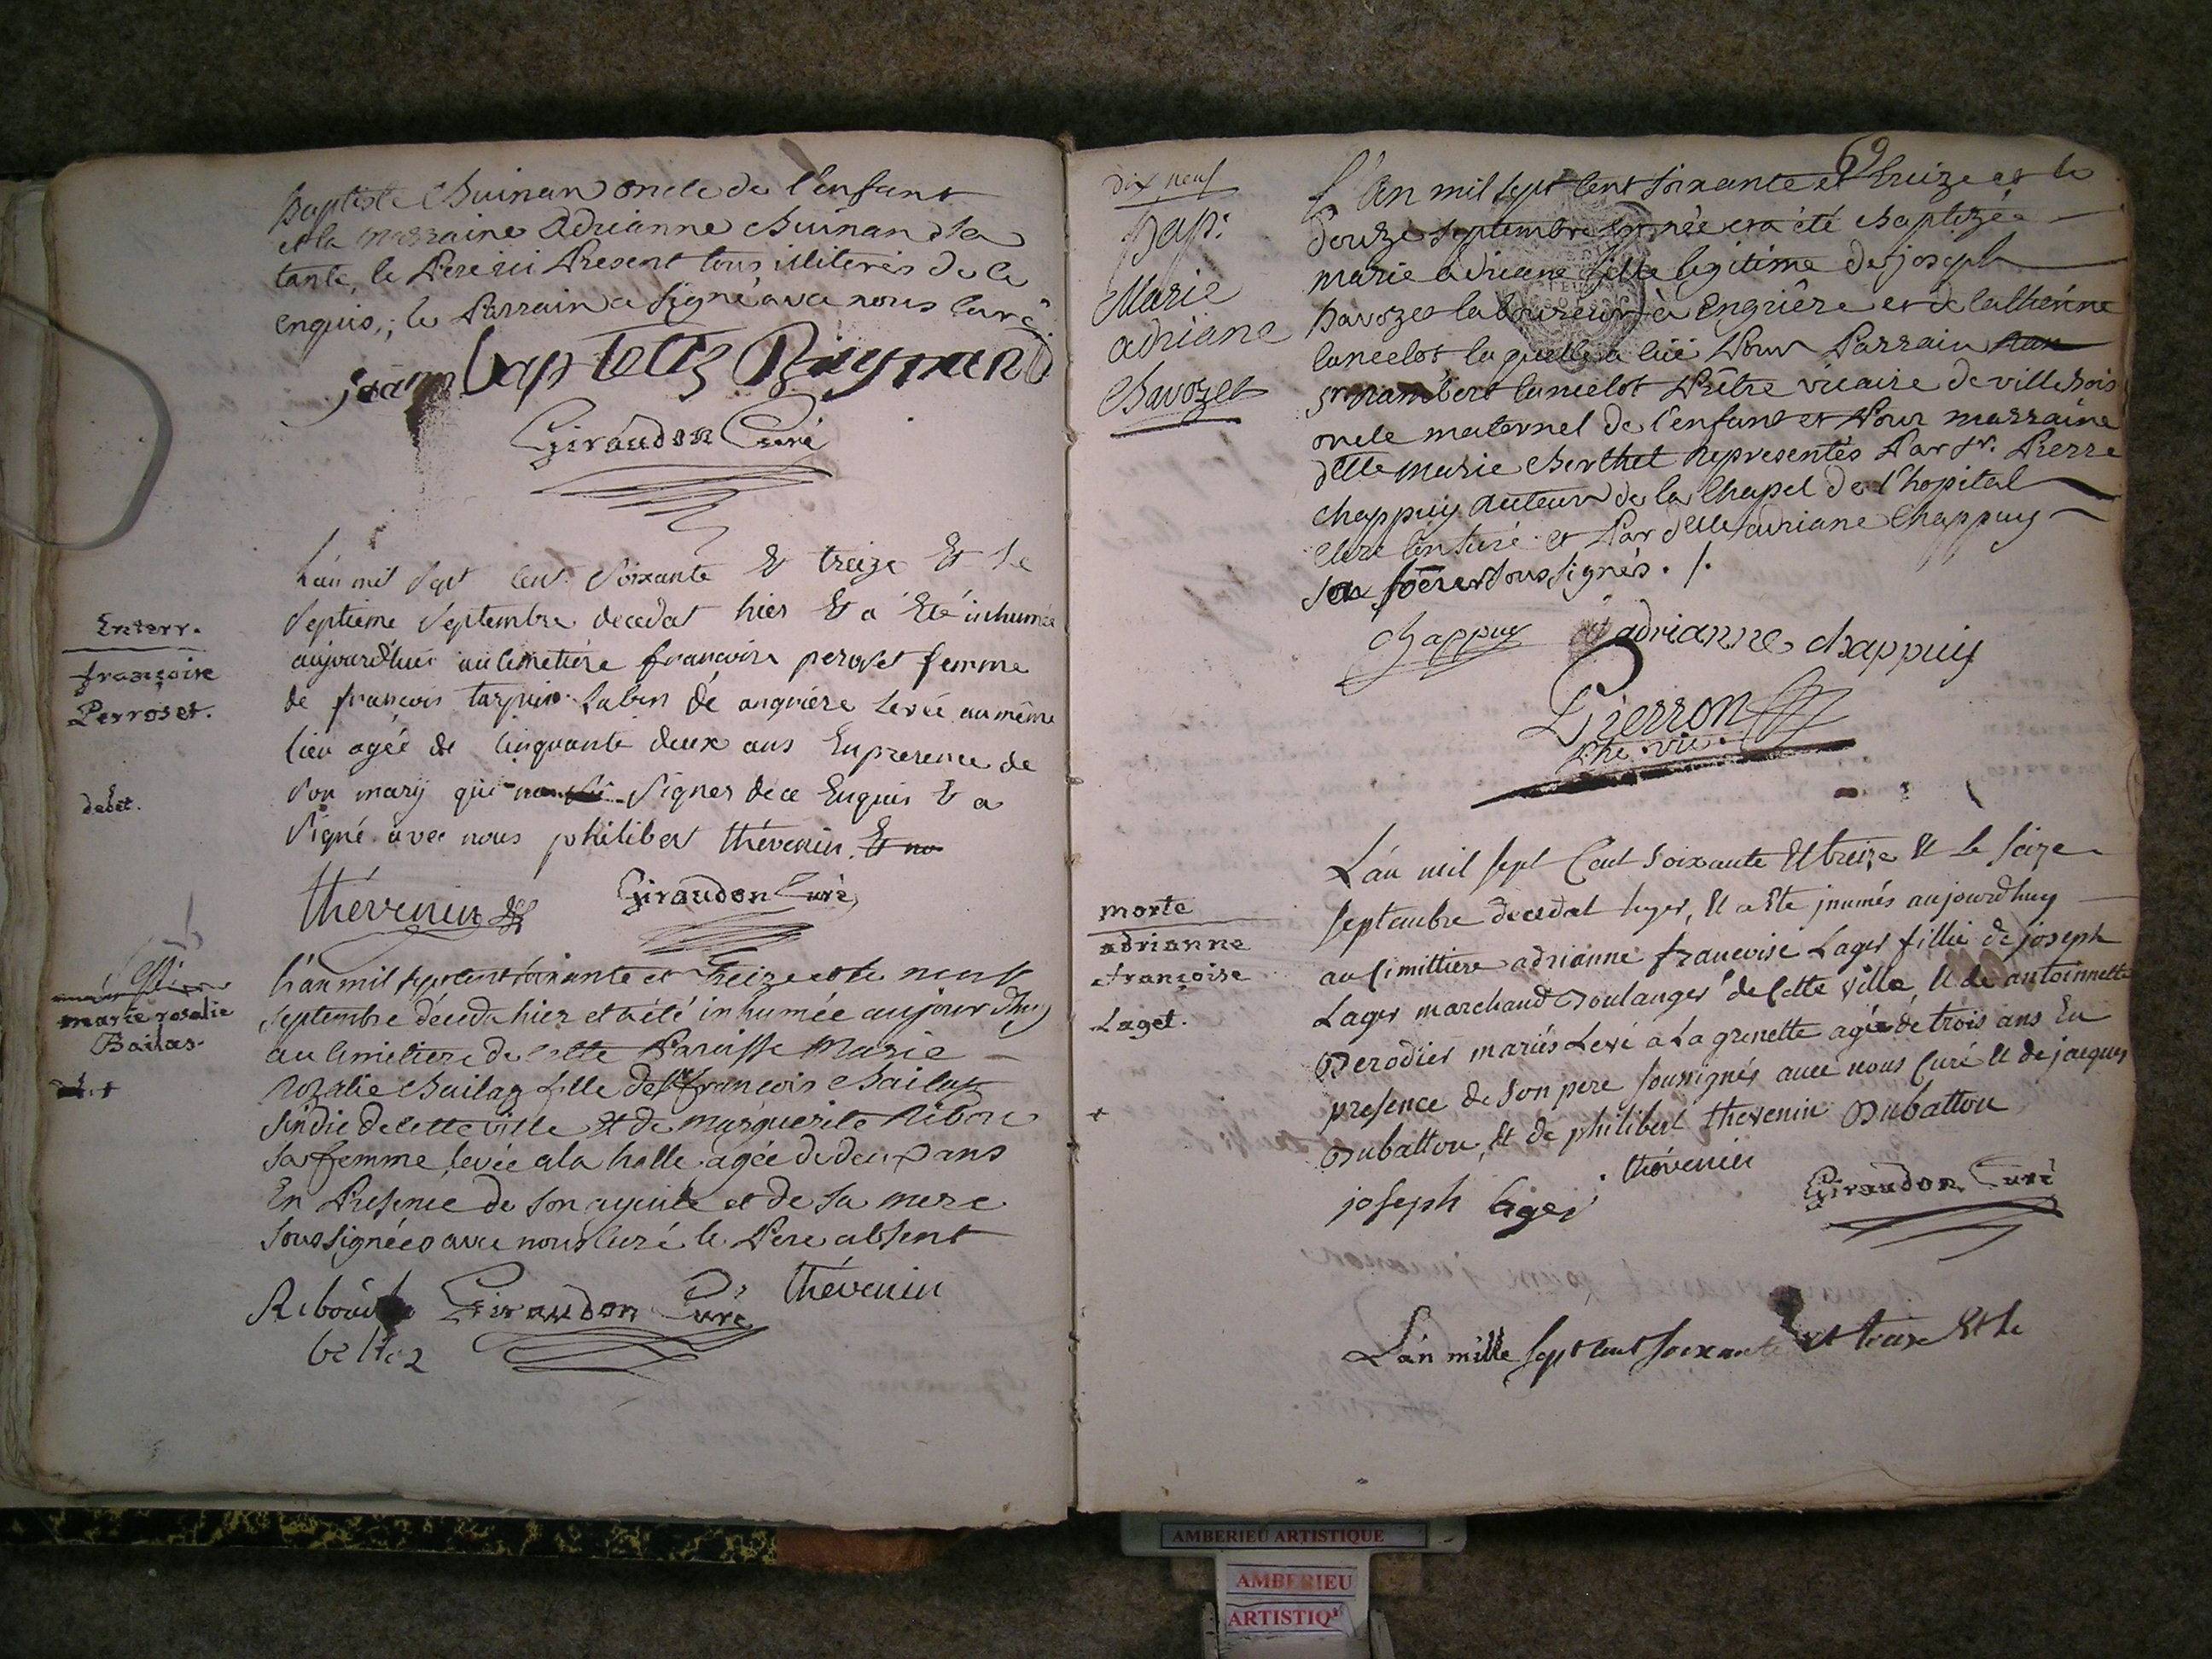 Baptiste Buinan oncle de l'enfant
et la marraine Adrianne Buinand sa
tante, le Pere ici Present tous illiteres de ce
enquis, ; le Parrain a signé avec nous curé
jean baptette Buynand
Giraudon Curé
Enterr.
françoise
Perroset.
debet.
L'an mil Sept cent Soixante Et treize Et Le
Septieme Septembre decedat hier Et a Eté inhumée
aujourd'huit au cimetiere francoise peroset femme
de francois tarpin de angriére Levée au même
lieu agée de Cinquante deux ans En presence de
Son mary qui Signer de ce Enquis Et a
Signé avec nous philibert thévenin. Et no
thévenin
Giraudon Curé
marie rosalie
Bailas.
L'an mil sept cent soixante et Treize et le neuf
Septembre décéda hier et a été inhumée aujourdhuy
au Cimetiere de Cette Paroisse Marie
Rozalie Bailas fille de Sr francois Bailas
Sindic de cette ville Et de Marguerite Ribou
Sa femme levée a la halle agée de deux ans
En Presence de Son ayeule et de Sa mere
Soussignées avec nous Curé le Pere absent
Giraudon Curé
thévenin
69
Dix neuf
Bap:
Marie
adriane
Bavozet
L'An mil sept Cent soixante et treize et le
Douze Septembre est née et a été Baptizée
marie adriane fille legitime de joseph
Bavozet laboureur à Engriére et de Catherine
lancelot laquelle a eüe Pour Parrain
Sr rambert lancelot Prêtre vicaire de villebois
oncle maternel de l'enfant et Pour marraine
delle marie Berthet Representés Par Sr. Pierre
Chappuy Recteur de la Chapel de l'hopital
Clerc tonsuré et Par delle adriane Chappuy
Sa Soeur Soussignés . / .
Chappuy
adrianne chappuiy
Pierron
Ptre vic.
morte
adrianne
françoise
Laget.
+
L'an mil Sept Cent Soixante Et treize Et le Seize
Septembre decedat hyer, Et a Eté jnumés aujourdhuy
au Cimittiere adrianne francoise Lager fillie de joseph
Lager marchand Boulanger de Cette ville, Et de antoinnette
Berodier mariés Levé a La grenette agée de trois ans En
presence de Son pere Soussignés avec nous Curé Et de jacques
Dubattou, Et de philibert thevenin Dubattou
joseph liger
thévenin
Giraudon Curé
L'an mille Sept Cent Soixante Et treize Et le
AMBERIEU ARTISTIQUE
AMBERIEU
ARTISTIQ